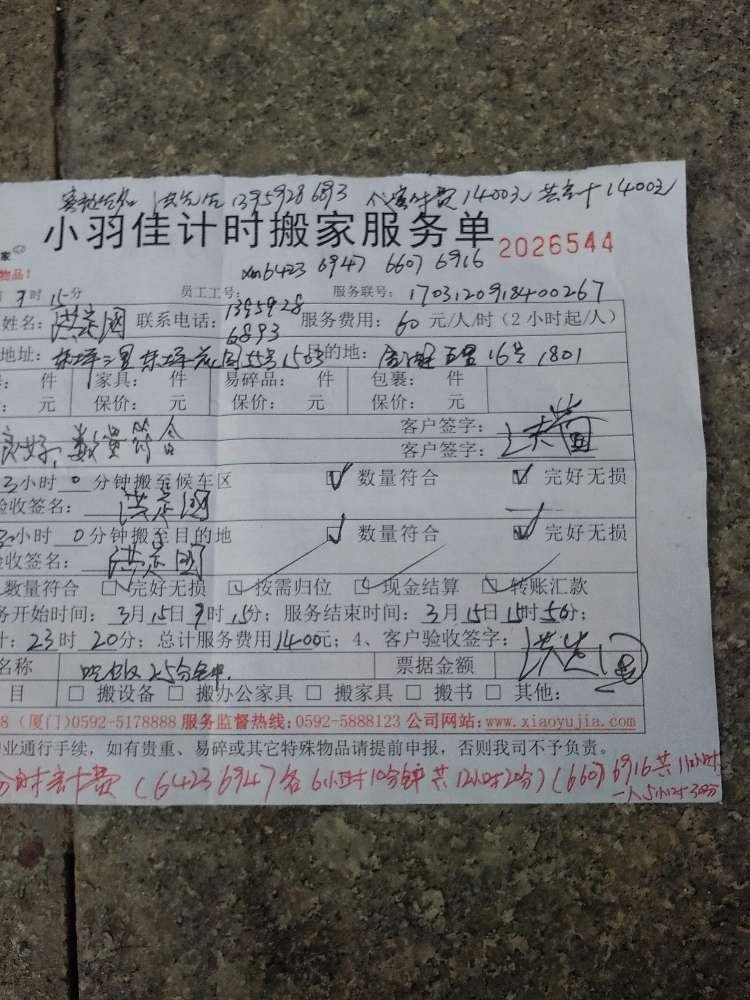 1395928 6893 人客付费 1400元 共计 1400元
小羽佳计时搬家服务单 2026544
家
物品！ xm6423 6947 6607 6916
9时15分 员工工号： 服务联号：1703120918400267
姓名：洪 国 联系电话：1395928 6893 服务费用：60元/人/时（2小时起/人）
地址：东坪二里 东坪花园55号1503 目的地： 16号1801
： 件 家具： 件 易碎品： 件 包裹： 件
： 元 保价： 元 保价： 元 保价： 元
良好，数量符合 客户签字：
客户签字：
3小时0分钟搬至候车区 ☑ 数量符合 ☑ 完好无损
验收签名：
3小时0分钟搬至目的地 ☑ 数量符合 ☑ 完好无损
验收签名：
数量符合 完好无损 按需归位 现金结算 转账汇款
务开始时间：3月15日9时15分；服务结束时间：3月15日15时50分；
计：23时20分；总计服务费用1400元；4、客户验收签字：
名称 吃饭 25分钟 票据金额
目 □ 搬设备 □ 搬办公家具 □ 搬家具 □ 搬书 □ 其他：
8 (厦门)0592-5178888 服务监督热线：0592-5888123 公司网站：www.xiaoyujia.com
业通行手续，如有贵重、易碎或其它特殊物品请提前申报，否则我司不予负责。
分时计费（6423 6947各6小时10分钟 共12小时20分）（6607 6916共11小时
一人5小时30分